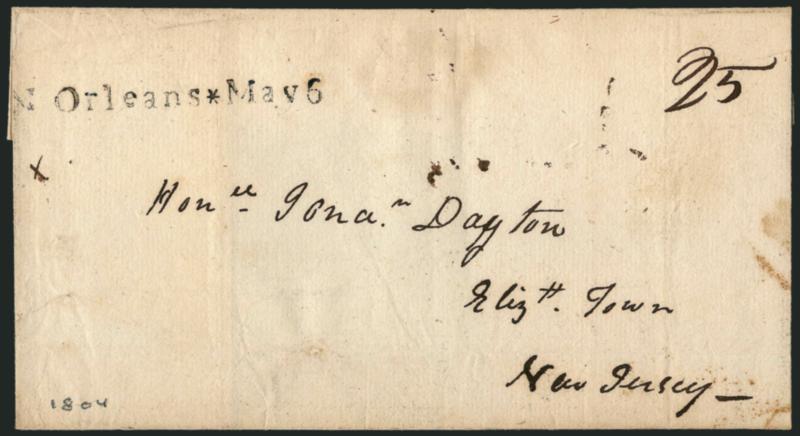 N Orleans*May 6
25
x
Honble Jonan. Dayton
Elizth. Town
New Jersey
1804